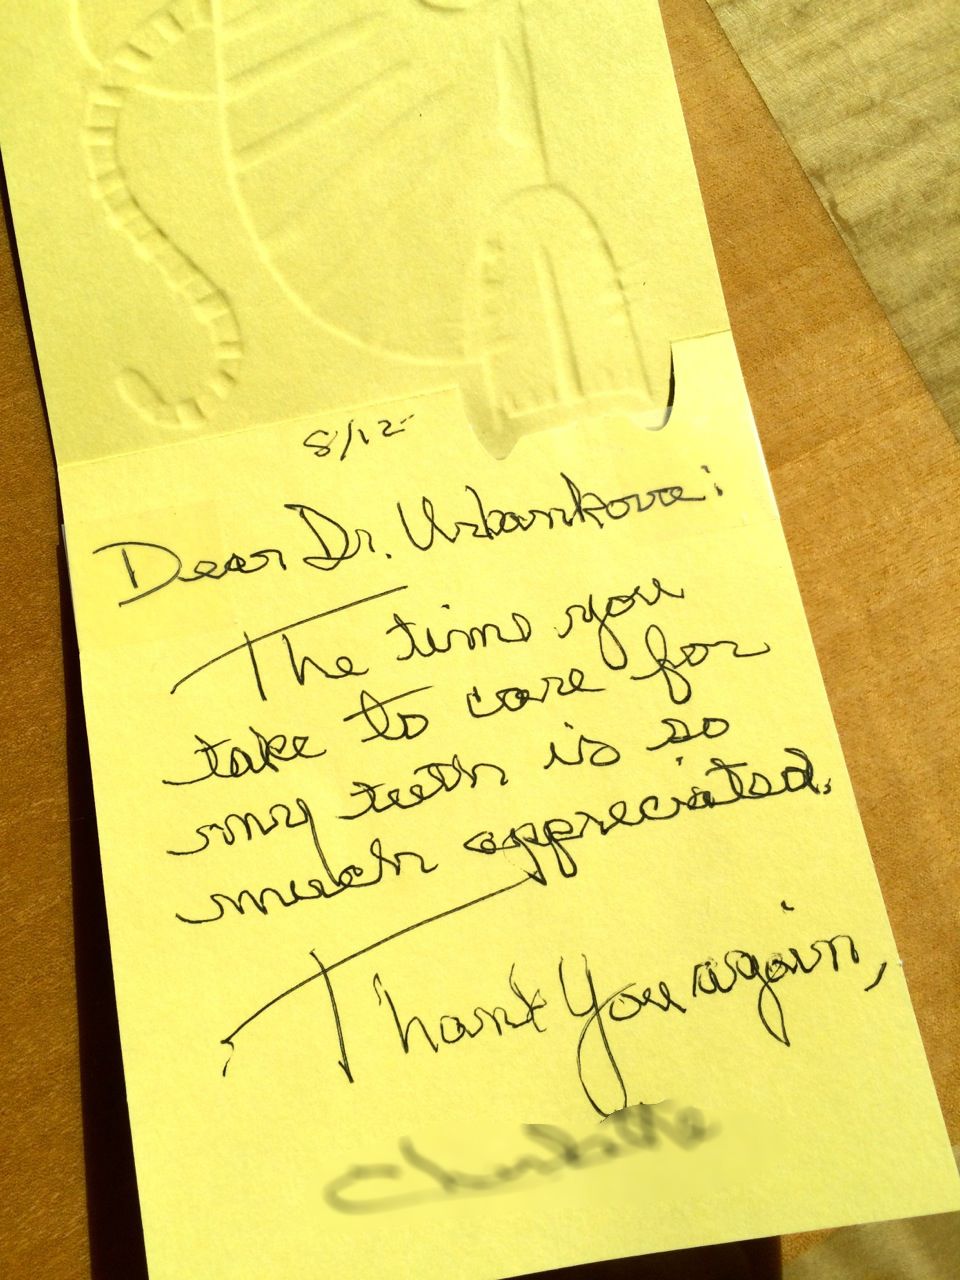 8/12
Dear Dr. Urbankova:
The time you
take to care for
my teeth is so
much appreciated.
Thank You again,